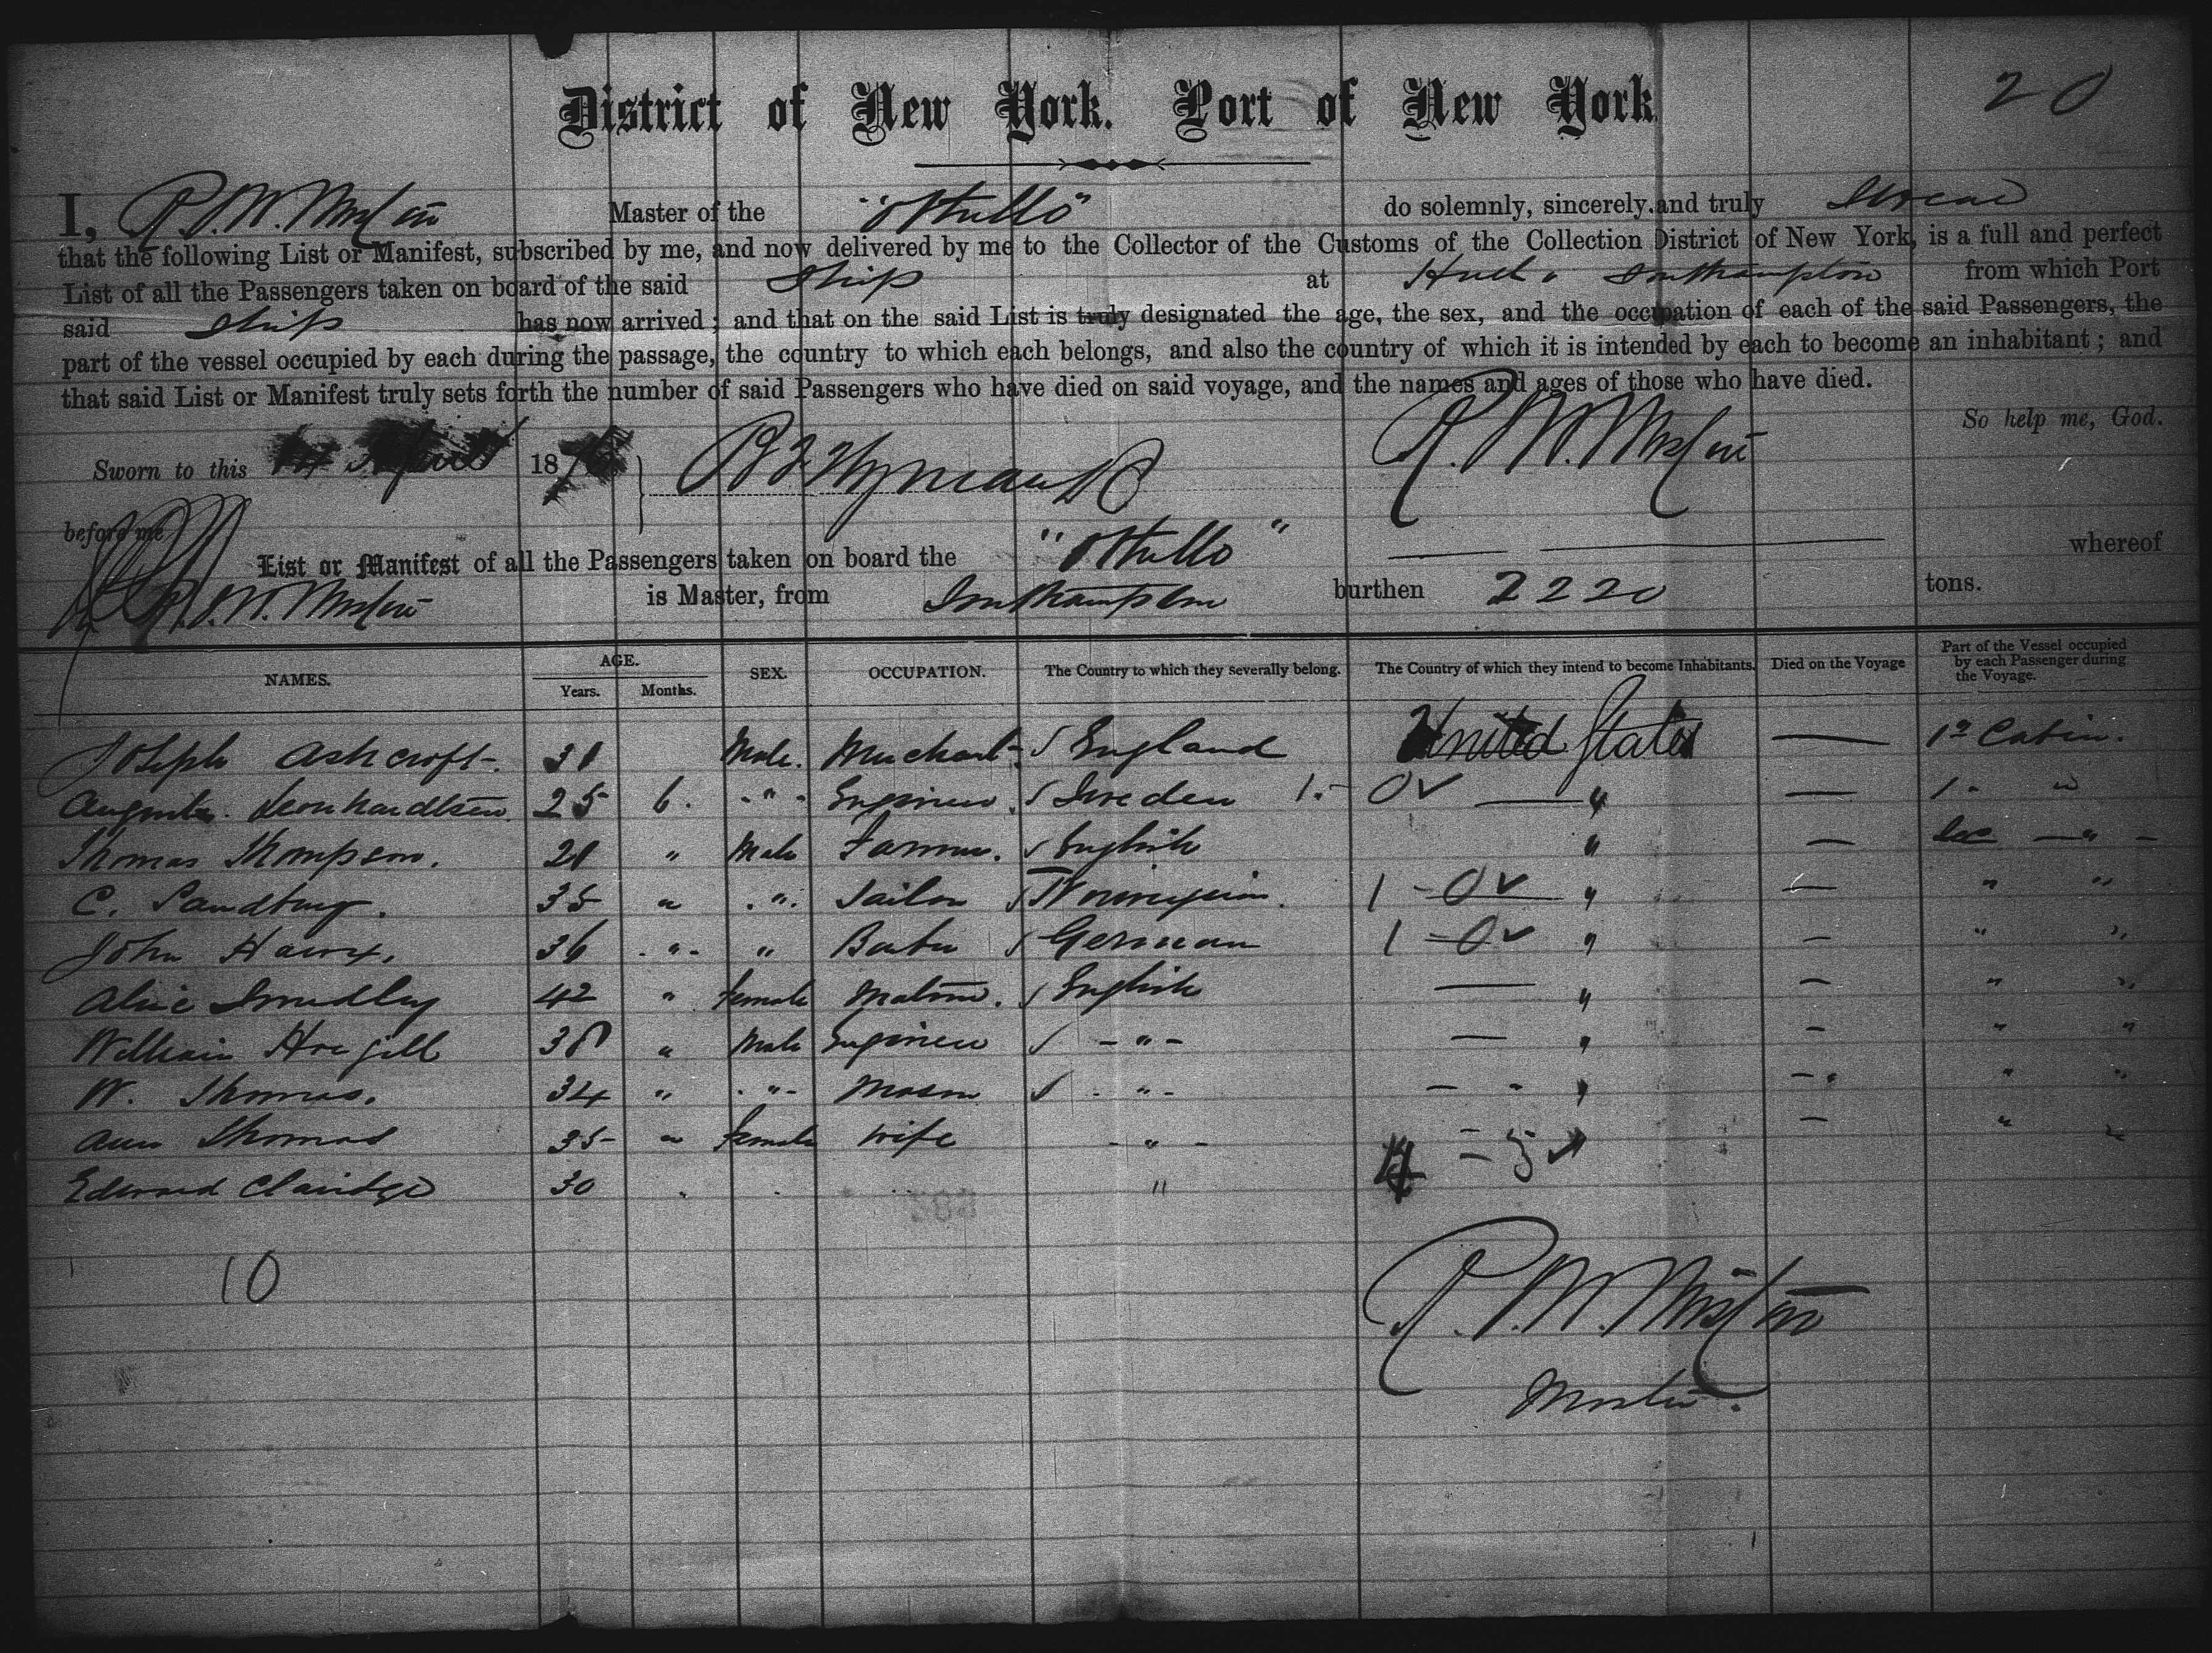 20
District of New York. Port of New York
I, Master of the "Othello" do solemnly, sincerely and truly Swear
that the following List or Manifest, subscribed by me, and now delivered by me to the Collector of the Customs of the Collection District of New York, is a full and perfect
List of all the Passengers taken on board of the said Ship at Hull & Southampton from which Port
said Ship has now arrived; and that on the said List is truly designated the age, the sex, and the occupation of each of the said Passengers, the
part of the vessel occupied by each during the passage, the country to which each belongs, and also the country of which it is intended by each to become an inhabitant; and
that said List or Manifest truly sets forth the number of said Passengers who have died on said voyage, and the names and ages of those who have died.
So help me, God.
Sworn to this 18
before me
List or Manifest of all the Passengers taken on board the "Othello" whereof
is Master, from Southampton burthen 2220 tons.
NAMES. AGE. Years. Months. SEX. OCCUPATION. The Country to which they severally belong. The Country of which they intend to become Inhabitants. Died on the Voyage Part of the Vessel occupied by each Passenger during the Voyage.
Joseph Ashcroft. 31 Male. Merchant. England United States — 1st Cabin.
25 6. " Engineer. Sweden 1.- 0✓ — " — 1. "
Thomas Thompson. 21 " Male Farmer. English " — Sec — " —
C. Sandberg. 35 " " Sailor 1 - 0✓ " — " "
John 36 " " German 1 - 0✓ " — " "
Alice Smedley 42 " Female Matron. English — " — " "
William 38 " Male Engineer - " - — " — " "
W. Thomas. 34 " " Mason - " - — " — " "
Ann Thomas 35 " Female Wife - " - — " "
Edward Claridge 30 "
10
Master.